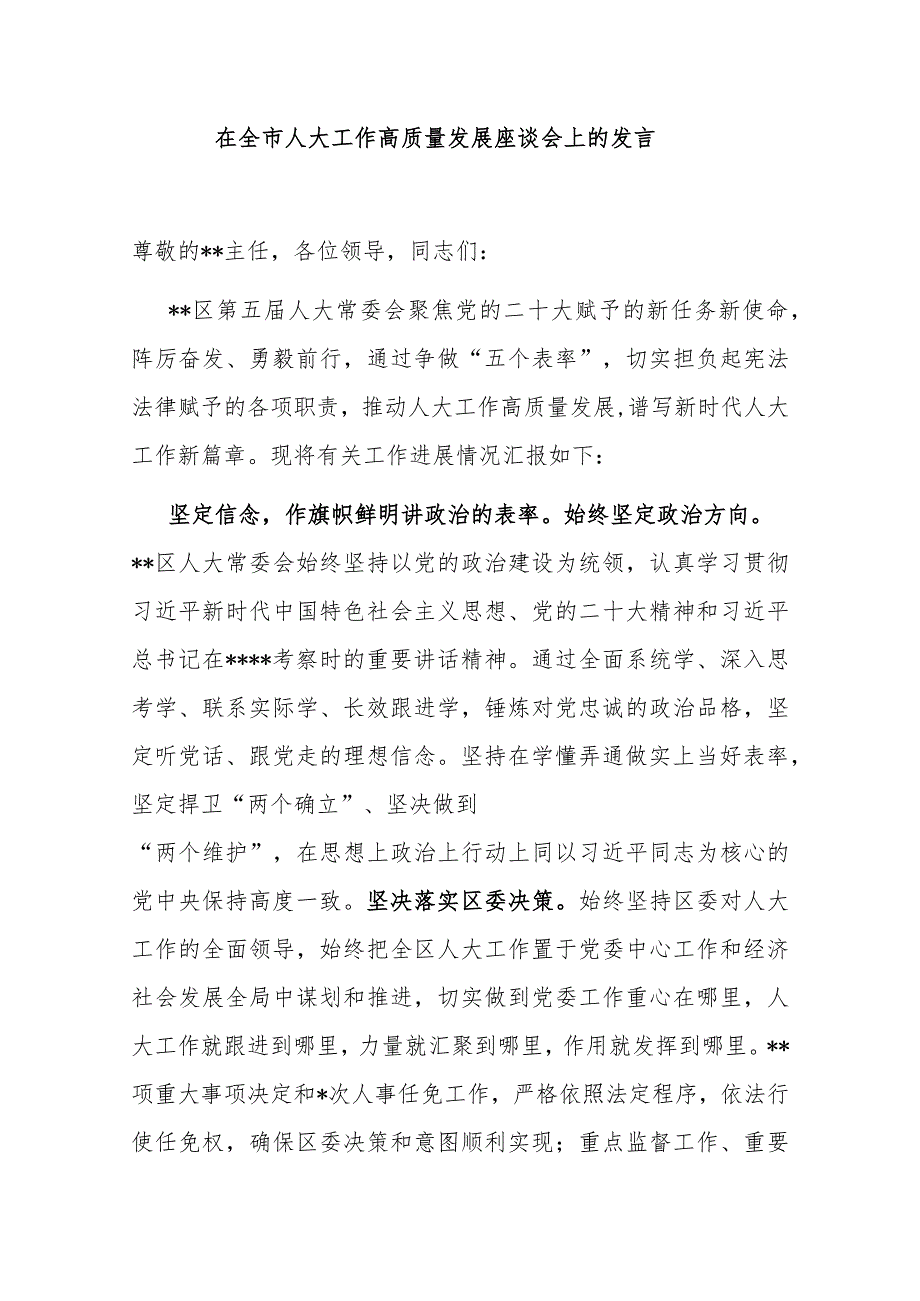 在全市人大工作高质量发展座谈会上的发言
尊敬的**主任，各位领导，同志们：
**区第五届人大常委会聚焦党的二十大赋予的新任务新使命，
阵厉奋发、勇毅前行，通过争做“五个表率”，切实担负起宪法
法律赋予的各项职责，推动人大工作高质量发展,谱写新时代人大
工作新篇章。现将有关工作进展情况汇报如下：
坚定信念，作旗帜鲜明讲政治的表率。始终坚定政治方向。
**区人大常委会始终坚持以党的政治建设为统领，认真学习贯彻
习近平新时代中国特色社会主义思想、党的二十大精神和习近平
总书记在****考察时的重要讲话精神。通过全面系统学、深入思
考学、联系实际学、长效跟进学，锤炼对党忠诚的政治品格，坚
定听党话、跟党走的理想信念。坚持在学懂弄通做实上当好表率，
坚定捍卫“两个确立”、坚决做到
“两个维护”，在思想上政治上行动上同以习近平同志为核心的
党中央保持高度一致。坚决落实区委决策。始终坚持区委对人大
工作的全面领导，始终把全区人大工作置于党委中心工作和经济
社会发展全局中谋划和推进，切实做到党委工作重心在哪里，人
大工作就跟进到哪里，力量就汇聚到哪里，作用就发挥到哪里。**
项重大事项决定和*次人事任免工作，严格依照法定程序，依法行
使任免权，确保区委决策和意图顺利实现；重点监督工作、重要